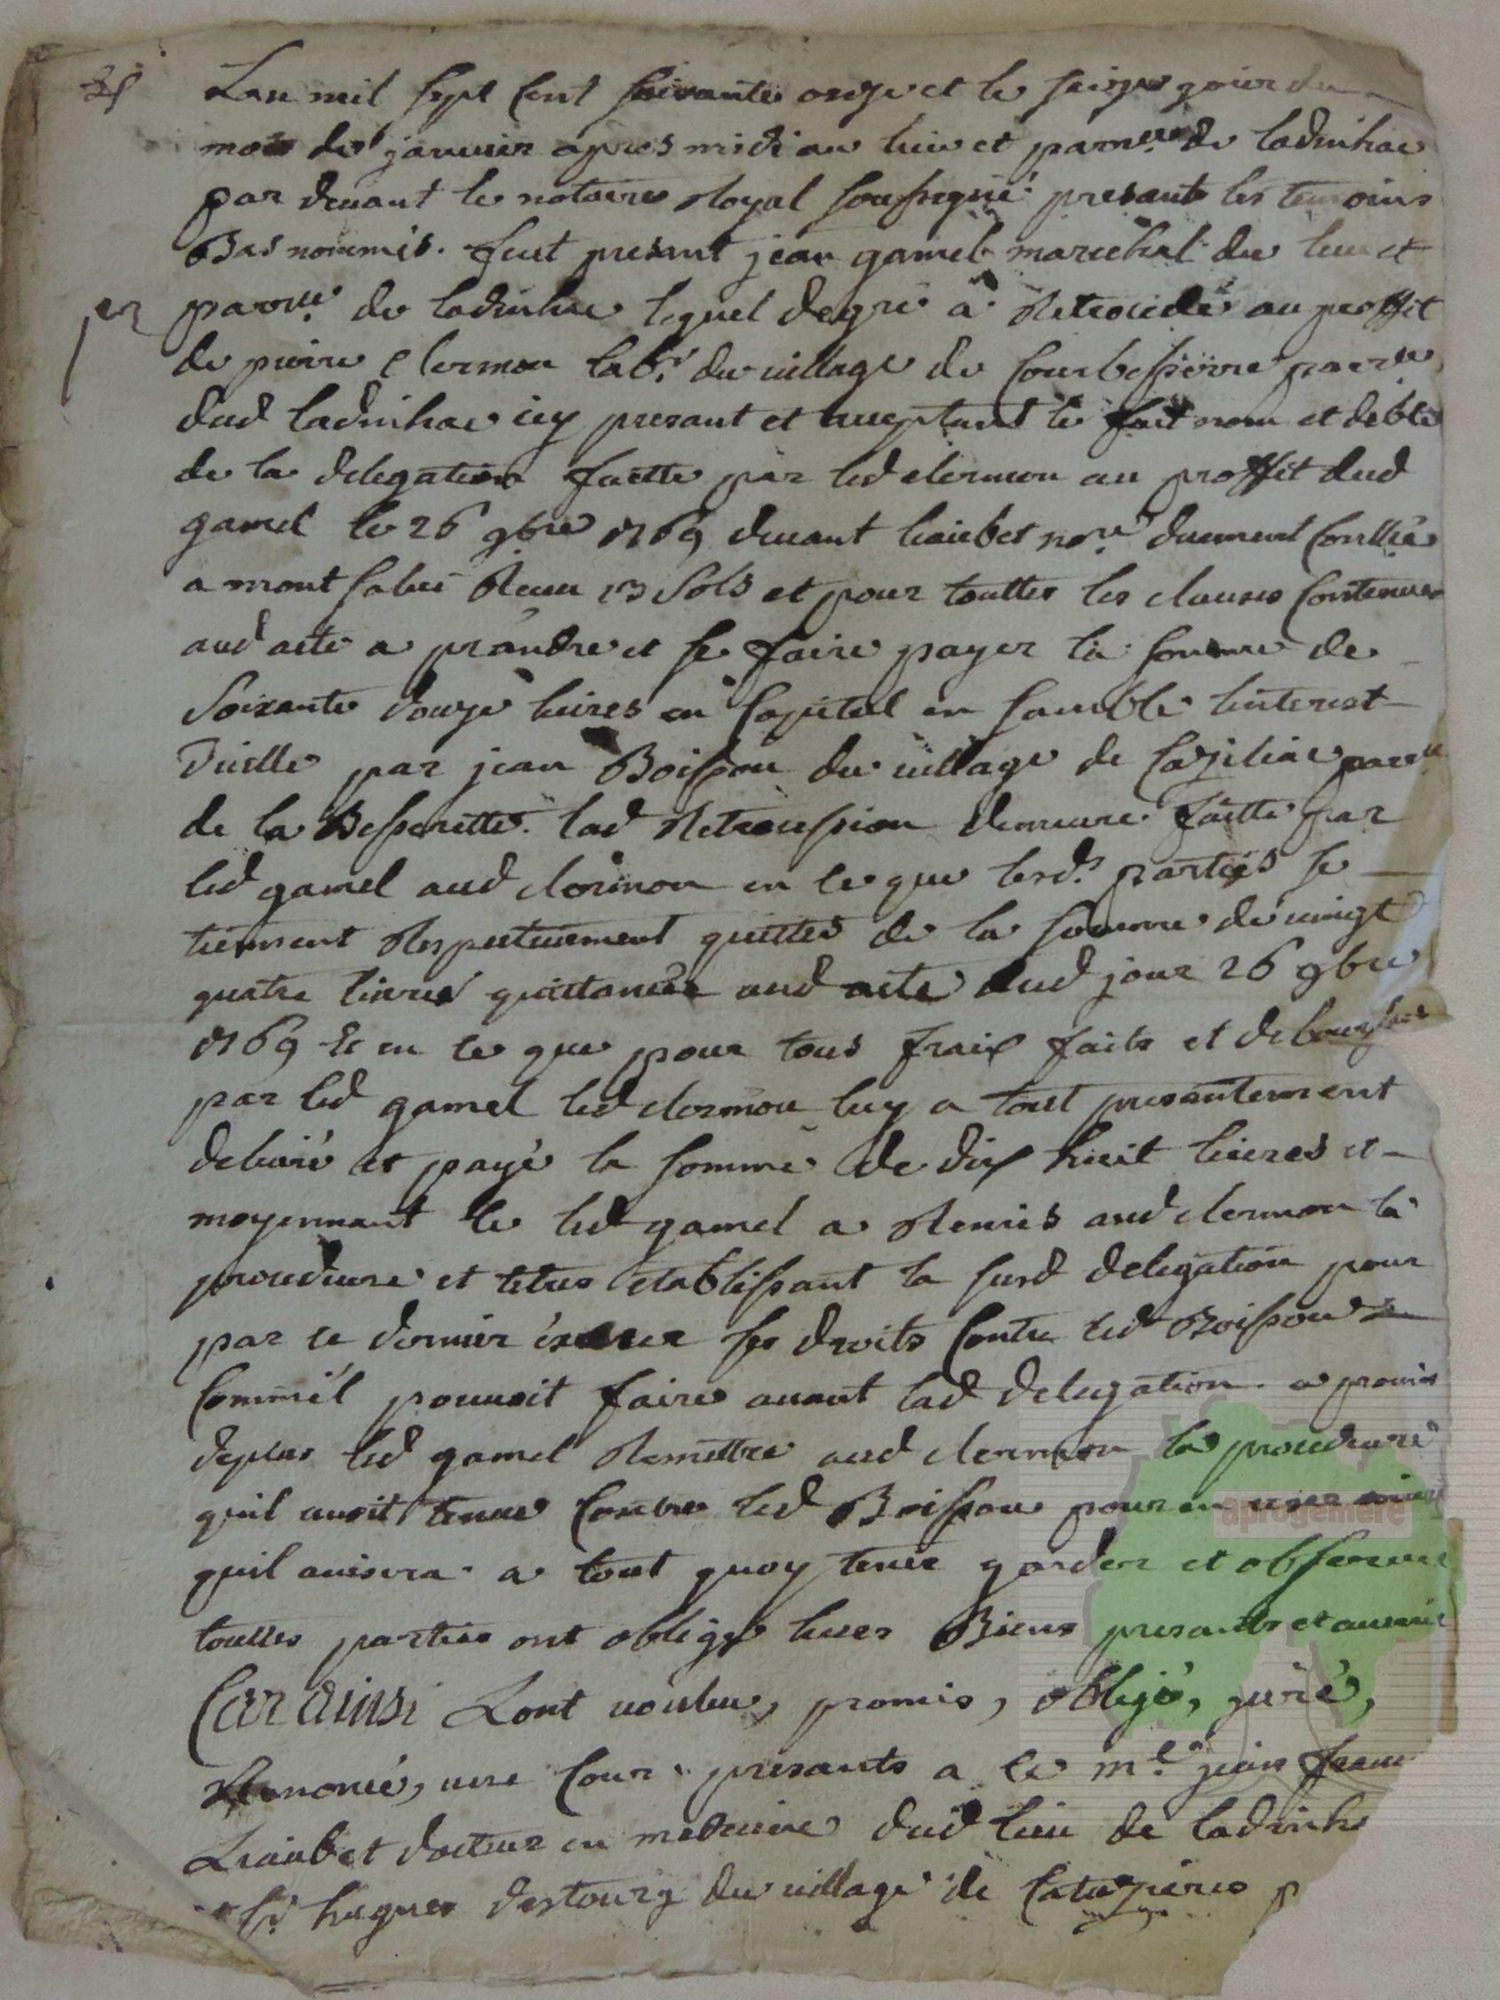 Lan mil sept cent soixante onze et le seize jour du
mois de janvier apres midi au lieu et parr.se de ladinhac
par devant le notaire Royal soussigné presants les temoins
Bas nommés. fut presant jean gamel marechal du lieu et
parr.se de ladinhac lequel de gré a Retrocédé au proffit
de pierre Clermon lab.r du village de Courbessierre parr.se
dud ladinhac icy presant et acceptant le fait nom et debte
de la delegation faitte par led clermon au proffit dud
gamel le 26 9bre 1769 devant liaubet no.re duement Conllée
a montsalvi Receu 13 sols et pour touttes les clauses Contenues
aud acte a prandre et se faire payer la somme de
Soixante douze livres en Capital en samble linterest
Dicelle par jean Boissou du village de Caziliac parr.se
de la Besserette. lad Retrocession demeure faitte par
led gamel aud clermon en ce que lesd.s parties se
tiennent Respectivement quittes de la somme de vingt
quatre livres quittancée aud acte dud jour 26 9bre
1769 Et en ce que pour tous fraix faits et debourses
par led gamel led clermon luy a tout presantement
delivré et payé la somme de dix huit livres et
moyennant ce led gamel a Remis aud clermon la
procedure et titres etablissant la susd delegation pour
par ce dernier exercer ses droits Contre led Boissou
Comme il pouvoit faire avant lad delegation. a promis
deplus led gamel Remettre aud clermon la procedure
quil avoit tenue Contre led Boissou pour en user ainsi
quil avisera. a tout quoy tenir garder et observer
touttes parties ont obligé leurs Biens presants et avenir
Car ainsi Lont voulu, promis, obligé, juré,
Renoncé, une Cour. presants a ce m.e jean
Liaubet docteur en medecine dud lieu de ladinh
s.r hugues destourg du village de Catuzieres p
aprogemere